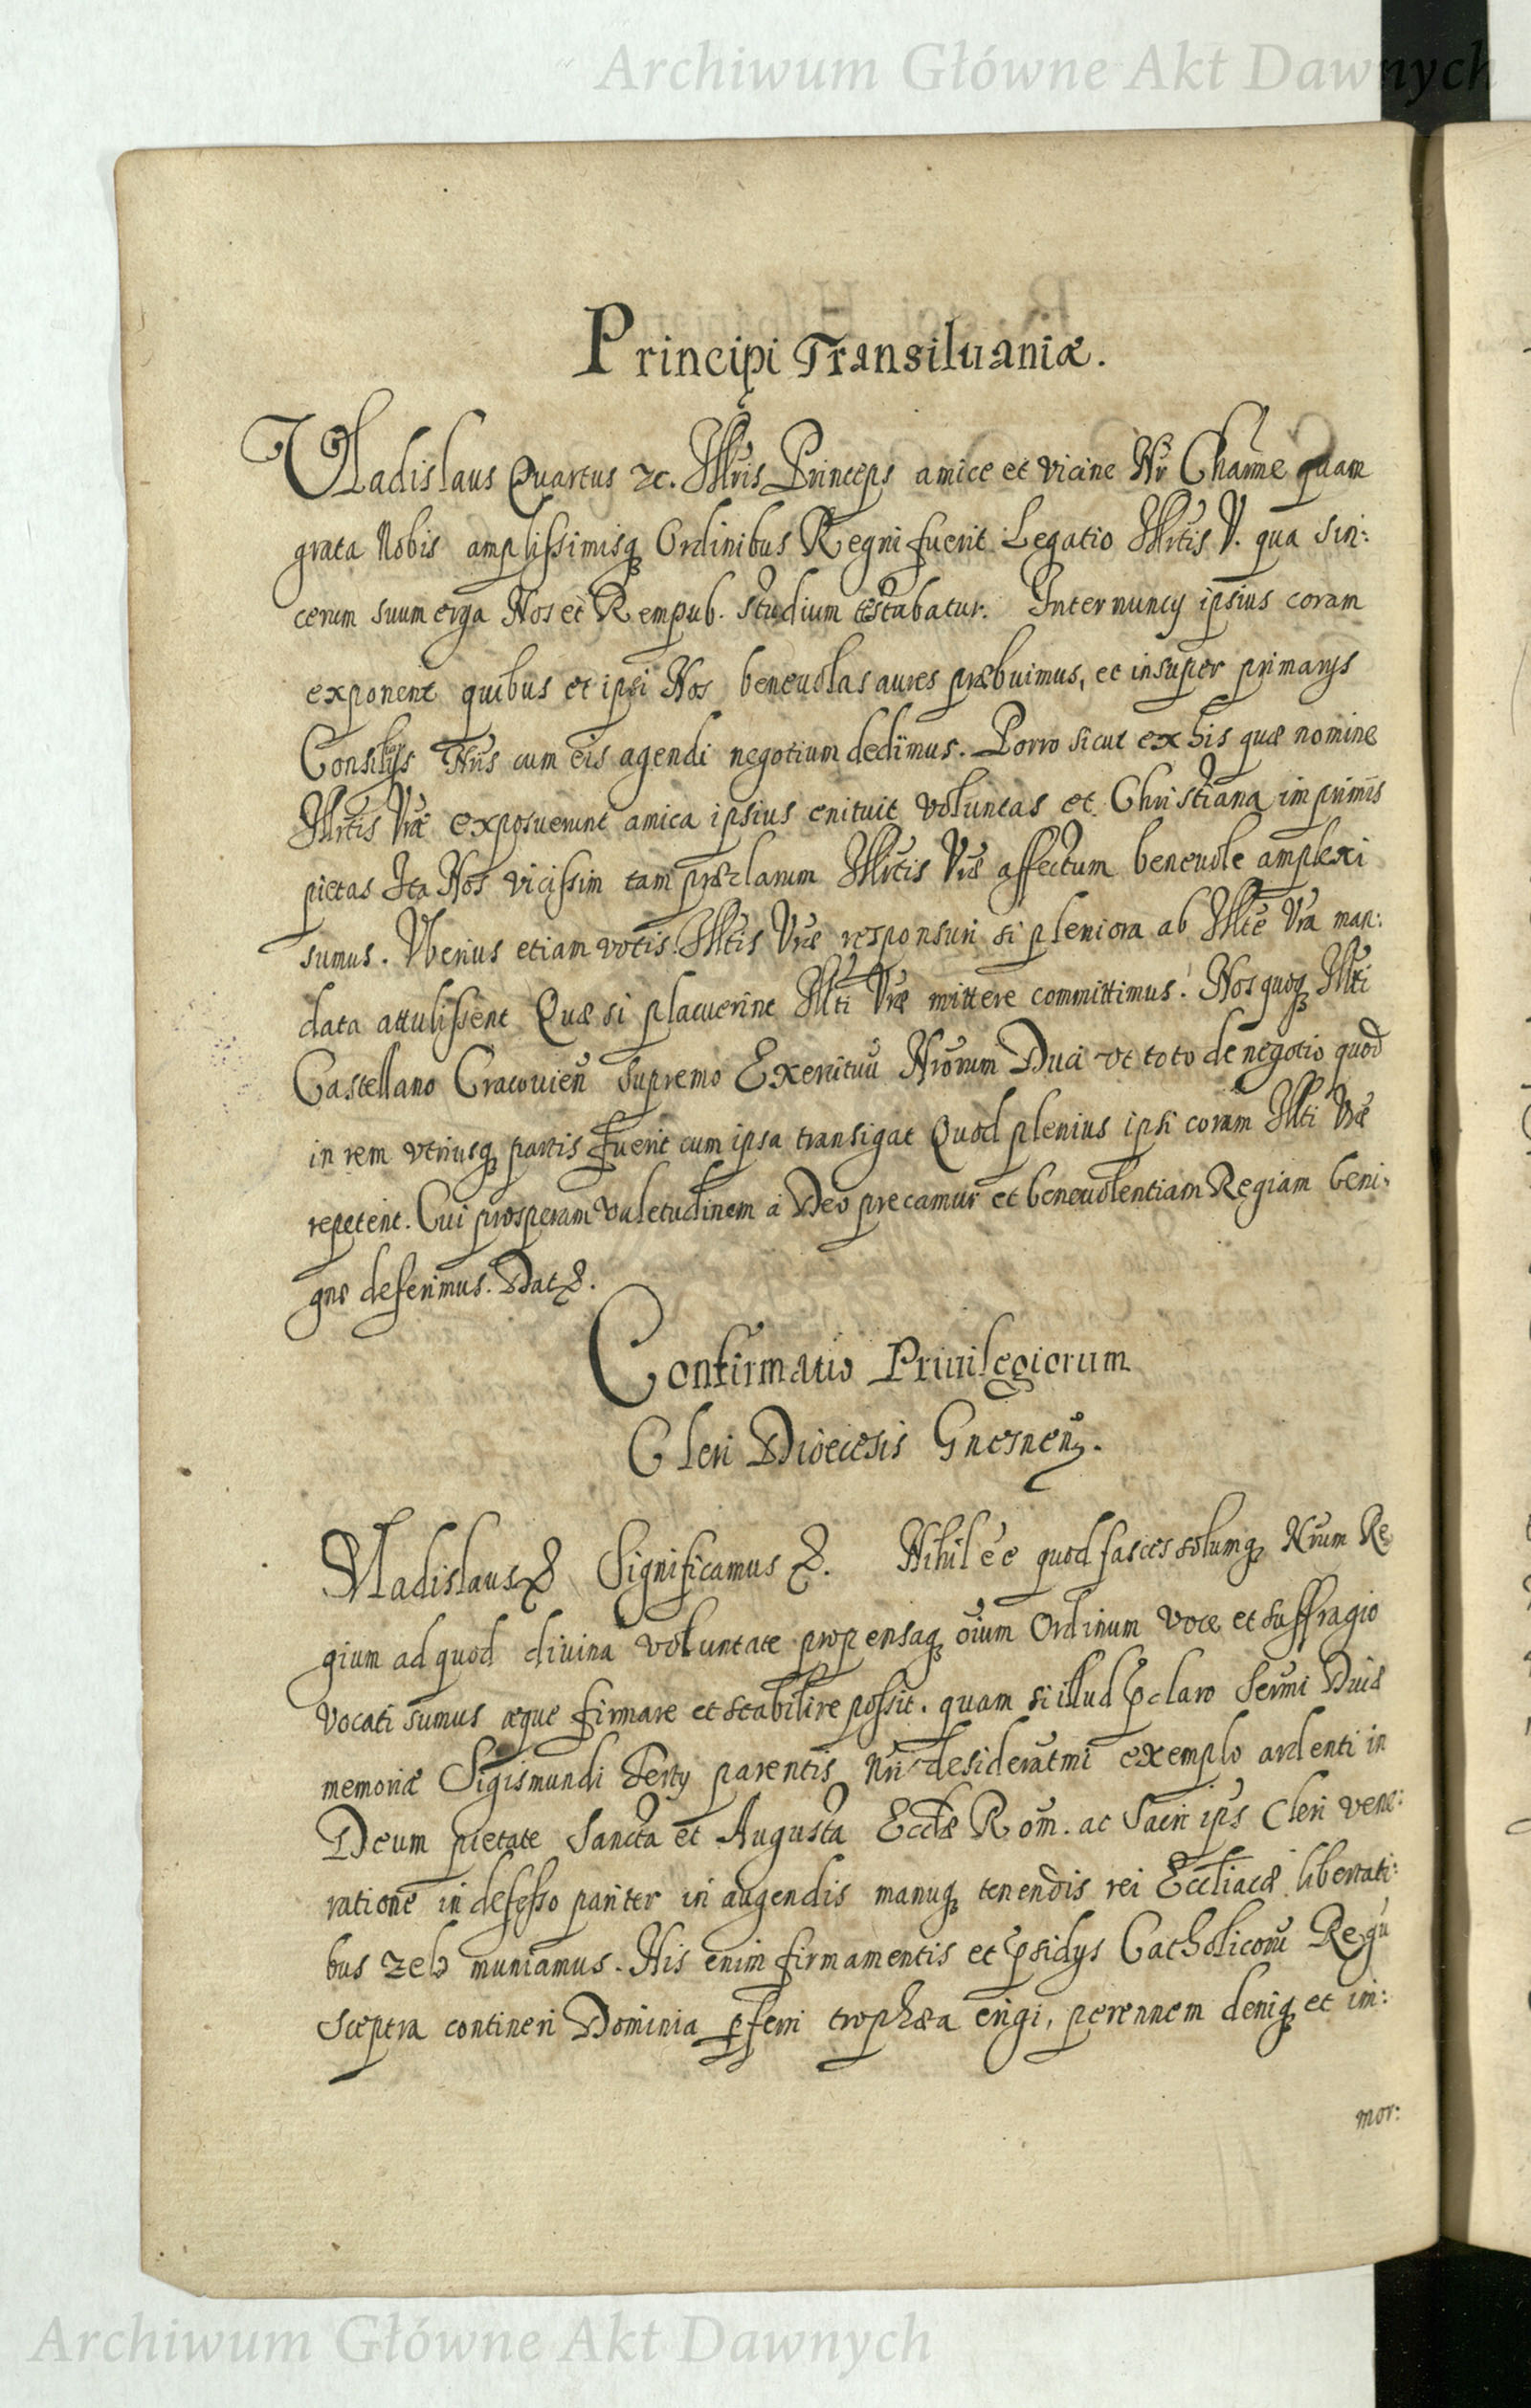 Archiwum Główne Akt Dawnych
Principi Transiluaniæ.
Vladislaus Quartus &c. Illris Princeps amice et vicine Nr Charme quam
grata Nobis amplissimisq Ordinibus Regni fuerit Legatio Illrtis V. qua sin:
cerum suum erga Nos et Rempub. studium testabatur. Internuncij ipsius coram
exponent quibus et ipsi Nos beneuolas aures præbuimus, et insuper primarijs
Consilijs Nris cum eis agendi negotium dedimus. Porro sicut ex his quæ nomine
Illrtis Vræ exposuerunt amica ipsius enituit voluntas et Christiana imprimis
pietas Ita Nos vicissim tam præclarum Illrtis Vræ affectum beneuole amplexi
sumus. Vberius etiam votis Illtis Vræ responsuri si pleniora ab Illte Vra man:
data attulissent Quæ si placuerint Illti Vræ mittere committimus. Nos quoq Illri
Castellano Cracouien Supremo Exercituu Nrorum Duci vt toto de negotio quod
in rem vtriusq partis fuerit cum ipsa transigat Quod plenius ipsi coram Illti Vræ
repetent. Cui prosperam valetudinem a Deo precamur et beneuolentiam Regiam beni:
gne deferimus. Dat &.
Confirmatio Priuilegiorum
Cleri Dioecesis Gnesnen.
Vladislaus & Significamus &. Nihil ee quod fasces solumq Nrum Re
gium ad quod diuina voluntate propensaq oium Ordinum voce et suffragio
vocati sumus æque firmare et stabilire possit. quam si illud pclaro Sermi Diuæ
memoriæ Sigismundi Tertij parentis Nri desideratmi exemplo ardenti in
Deum pietate Sancta et Augusta Eccliæ Rom. ac Sacri ips Cleri vene:
ratione indefesso pariter in augendis manuq tenendis rei Eccliacæ libertati:
bus zelo muniamus. His enim firmamentis et psidijs Catholicoru Regu
Sceptra contineri Dominia pferri trophæa erigi, perennem deniq et im:
mor:
Archiwum Główne Akt Dawnych